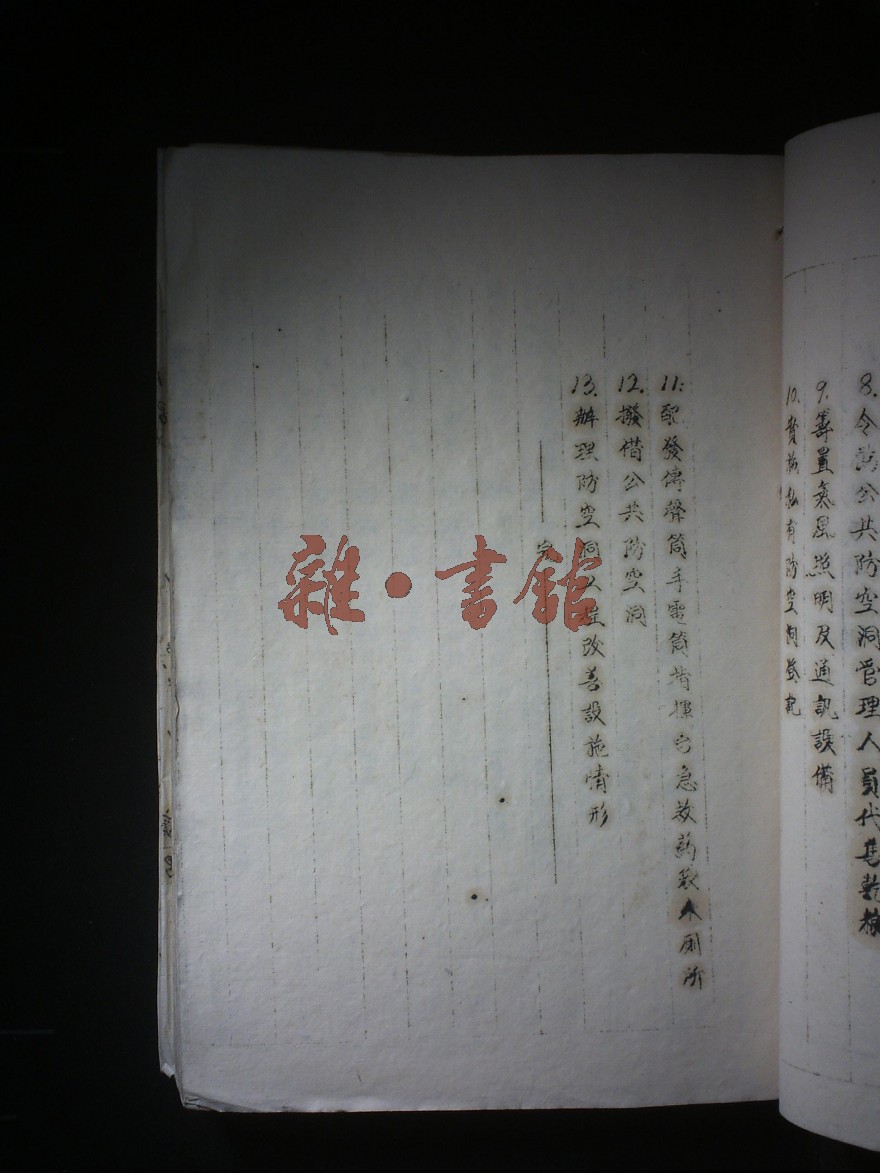 8.令飭公共防空洞管理人員代售乾糧
9.籌置氣風照明及通訊設備
10.實施私有防空洞登記
11.配發傳聲筒手電筒指揮
急救藥
廁所
12.撥借公共防空洞
13.辦理防空洞工程改善設施情形
完
雜·書館